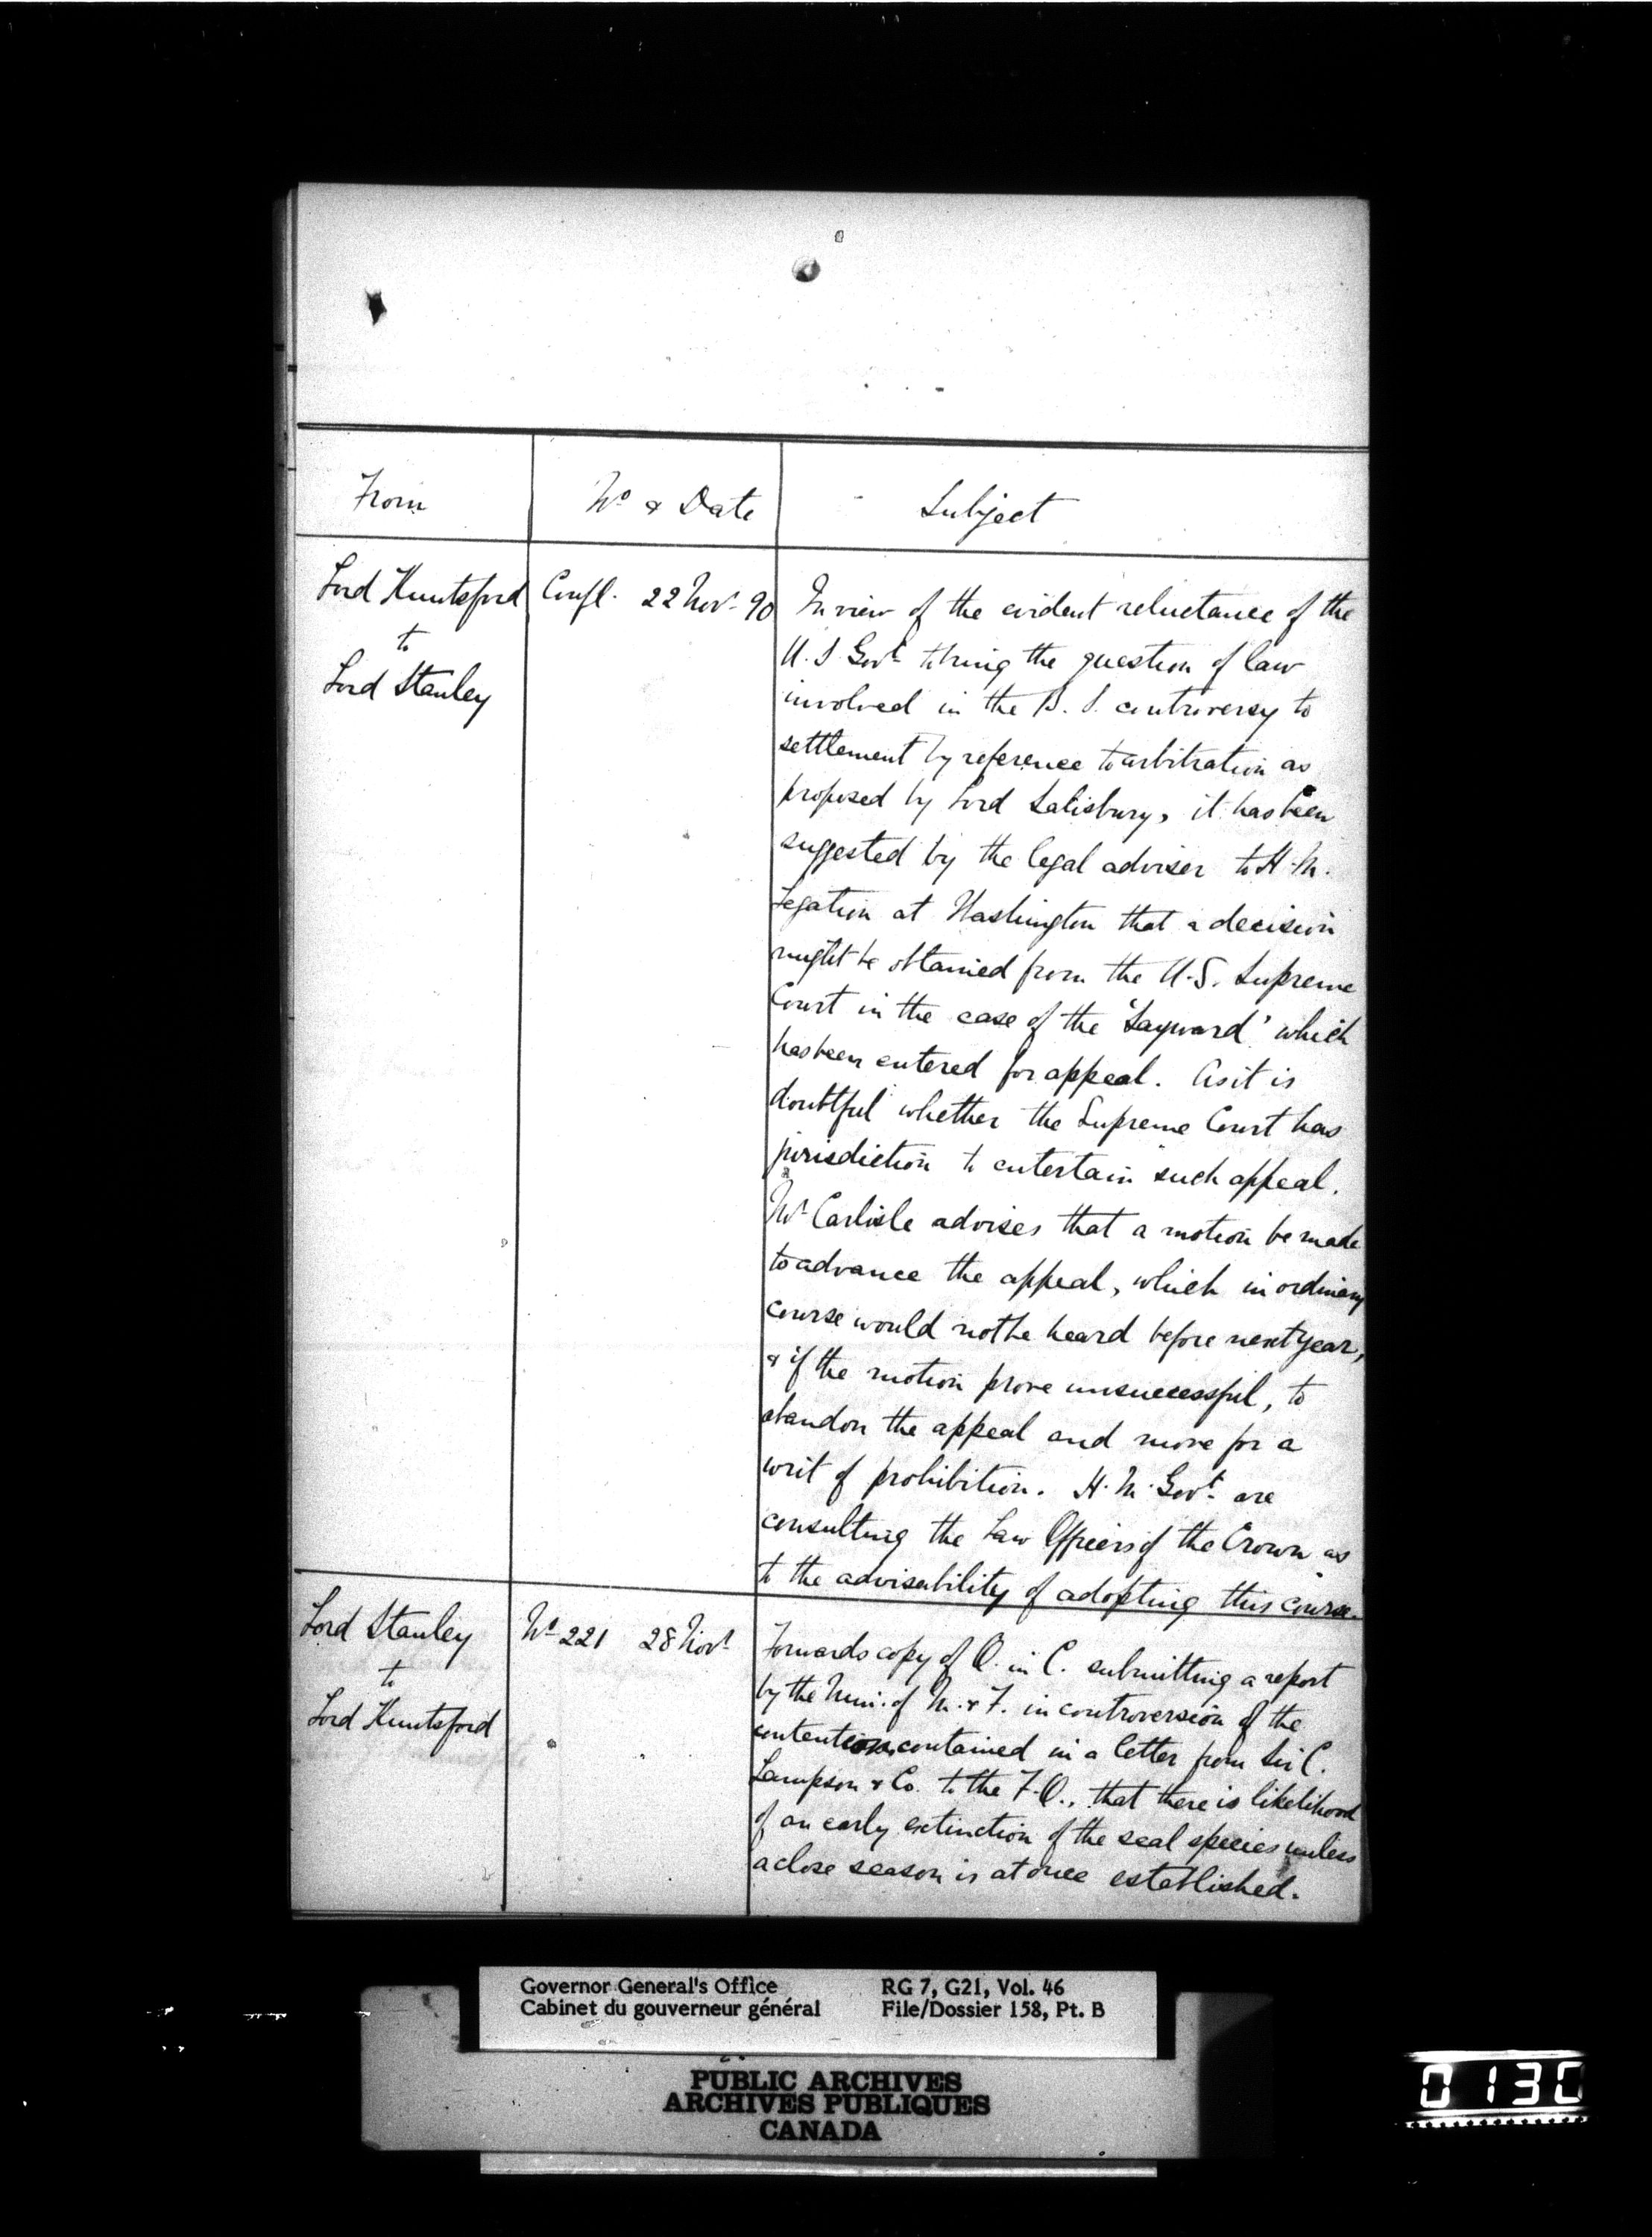 From
No & Date
Subject
Lord Knutsford
to
Lord Stanley
Confl. 22 Nov. 90
In view of the evident reluctance of the
U.S. Govt. to bring the question of law
involved in the B. S. controversy to
settlement by reference to arbitration as
proposed by Lord Salisbury, it has been
suggested by the legal adviser to H.M.
Legation at Washington that a decision
might be obtained from the U.S. Supreme
Court in the case of the 'Sayward' which
has been entered for appeal. As it is
doubtful whether the Supreme Court has
jurisdiction to entertain such appeal.
Mr Carlisle advises that a motion be made
to advance the appeal, which in ordinary
course would not be heard before next year,
& if the motion prove unsuccessful, to
abandon the appeal and move for a
writ of prohibition. H.M. Govt. are
consulting the Law Officers of the Crown as
to the advisability of adopting this course.
Lord Stanley
to
Lord Knutsford
No 221 28 Novr
Forwards copy of O. in C. submitting a report
by the Min. of M. & F. in controversion of the
contention contained in a letter from Sir C.
Lampson & Co. to the F.O., that there is likelihood
of an early extinction of the seal species unless
a close season is at once established.
Governor General's Office
Cabinet du gouverneur général
RG 7, G21, Vol. 46
File/Dossier 158, Pt. B
PUBLIC ARCHIVES
ARCHIVES PUBLIQUES
CANADA
0130